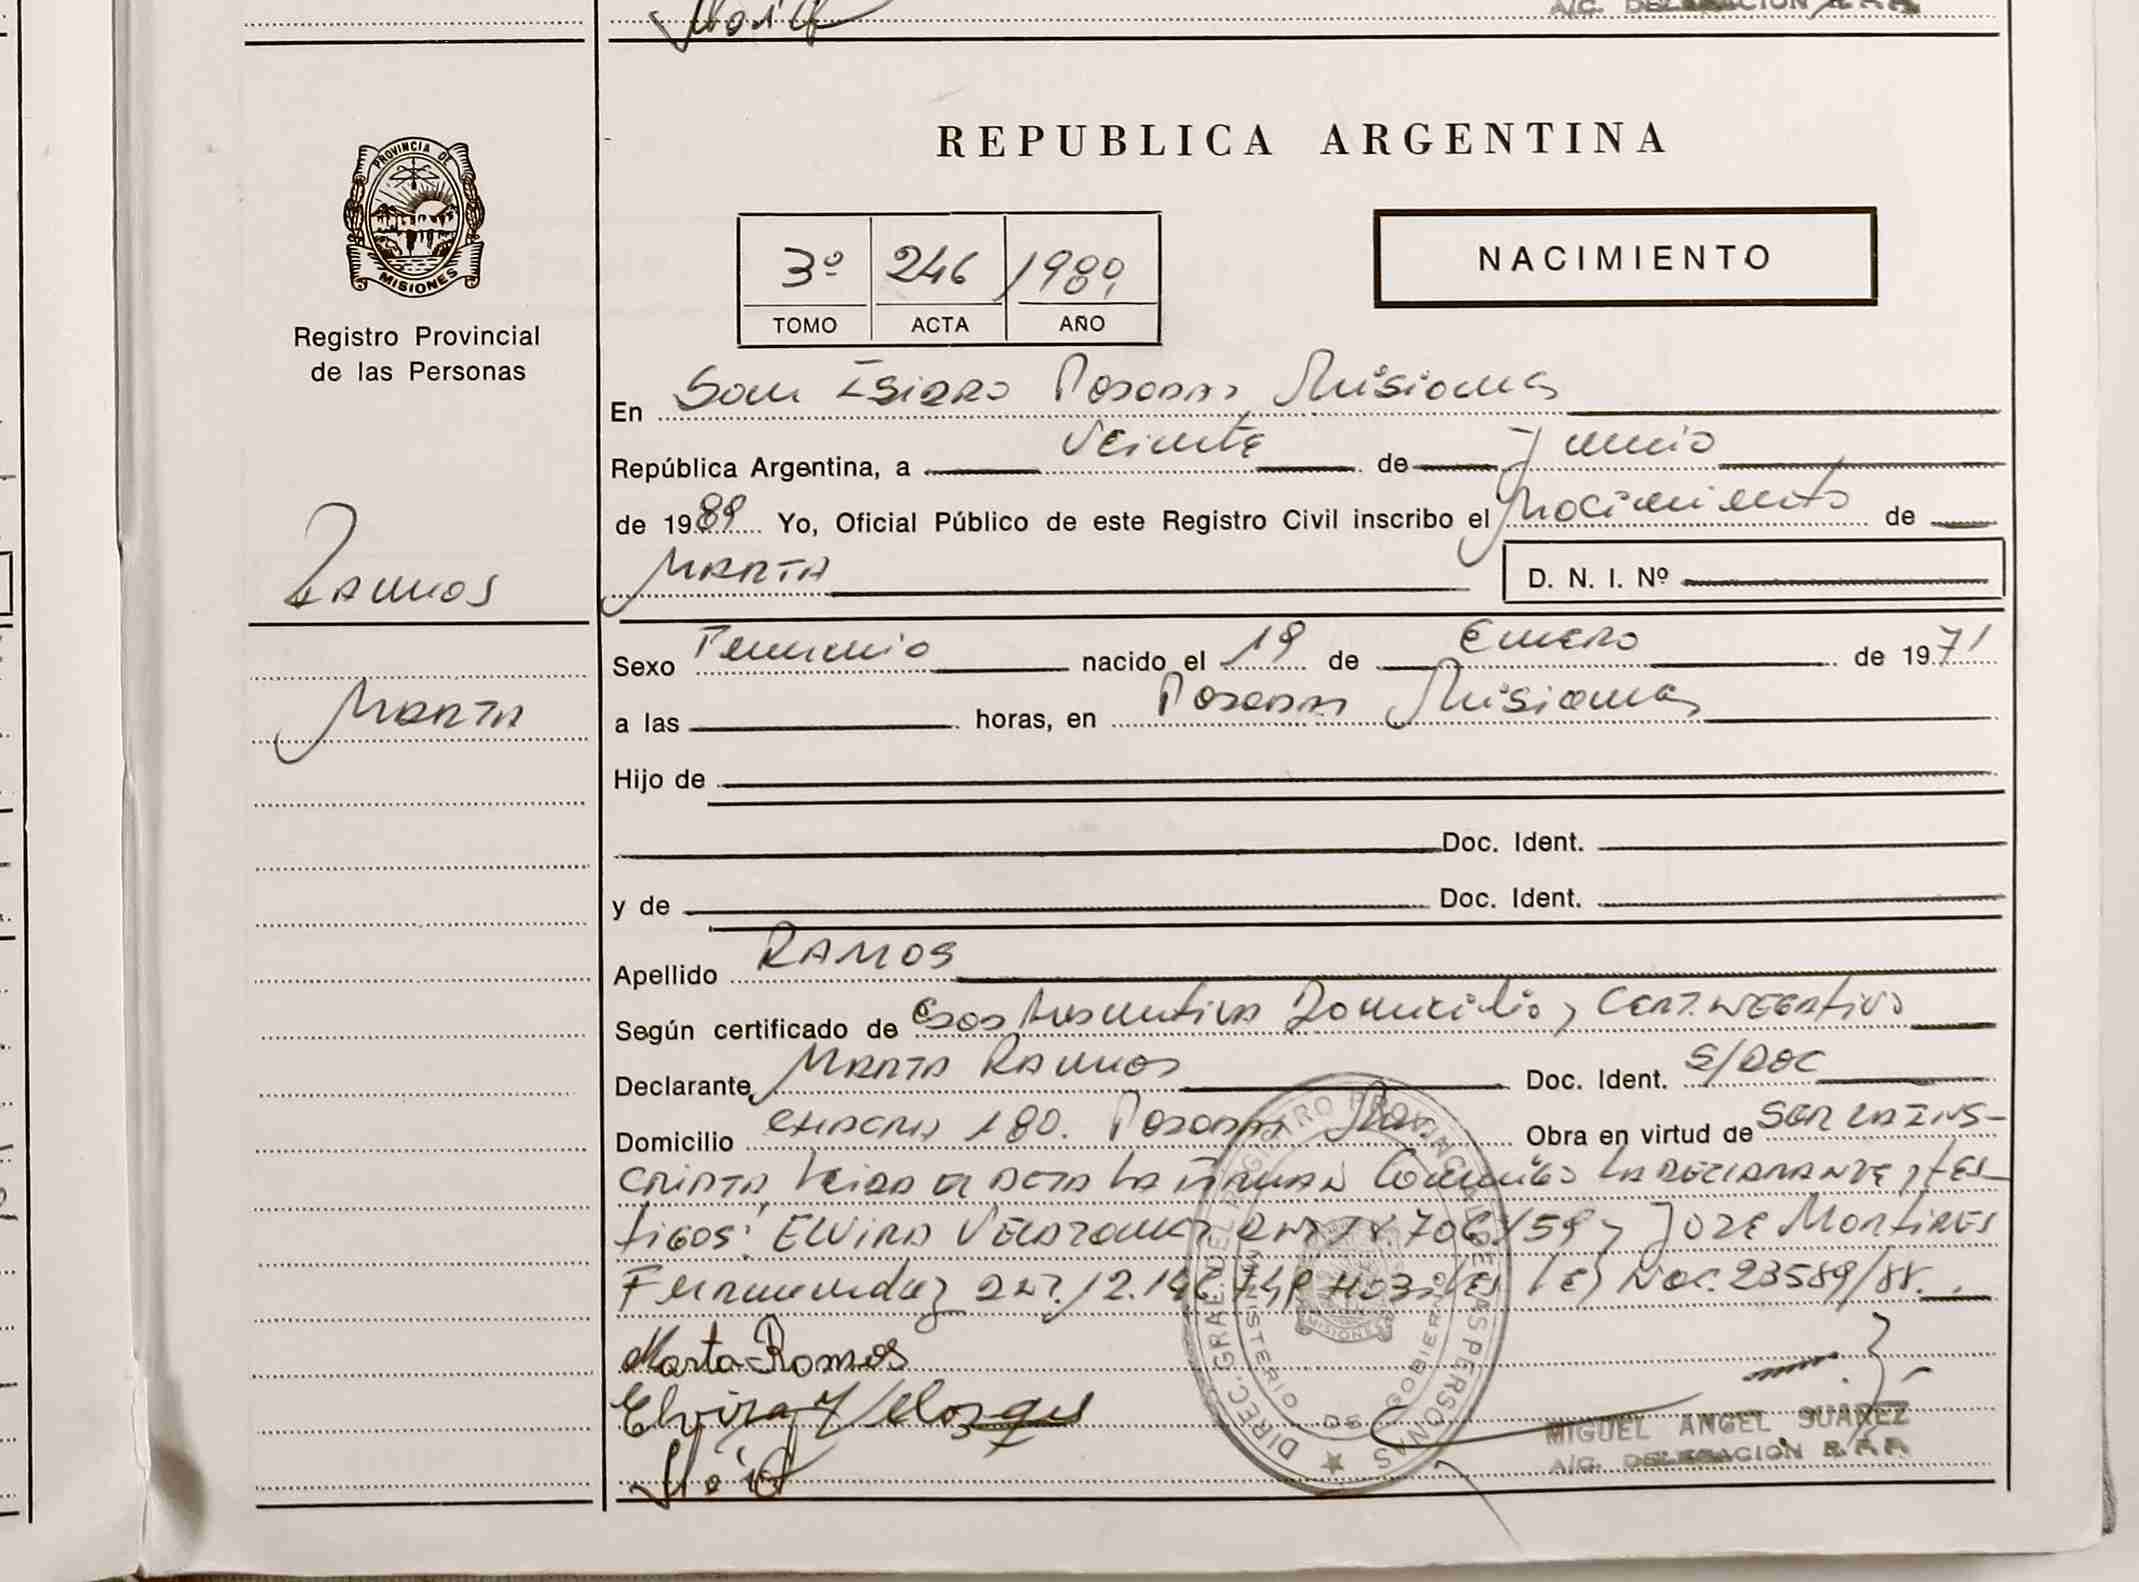 A/C. DELEGACION R.P.P.
PROVINCIA DE
MISIONES
Registro Provincial
de las Personas
REPUBLICA ARGENTINA
3º 246 1989
TOMO ACTA AÑO
NACIMIENTO
En San Isidro Posadas Misiones
República Argentina, a Veinte de Junio
de 1989 Yo, Oficial Público de este Registro Civil inscribo el Nacimiento de
Marta D. N. I. Nº
Ramos
Marta
Sexo Femenino nacido el 19 de Enero de 1971
a las horas, en Posadas Misiones
Hijo de
Doc. Ident.
y de Doc. Ident.
Apellido RAMOS
Según certificado de Domicilio y CERT. NEGATIVO
Declarante Marta Ramos Doc. Ident. S/DOC
Domicilio CHACRA 180. Posadas Mnes. Obra en virtud de SER LA INS-
CRIPTA, Leida el acta la firman Conmigo la declarante y tes-
tigos: Elvira Velazquez y Jose Martires
Fernandez 12.146.748 Nº 23589/88.
Marta Ramos
Elvira Velazques
MIGUEL ANGEL SUAREZ
A/C. DELEGACION R.P.P.
DIREC. GRAL. DEL REGISTRO PROVINCIAL DE LAS PERSONAS
MINISTERIO DE GOBIERNO
MISIONES